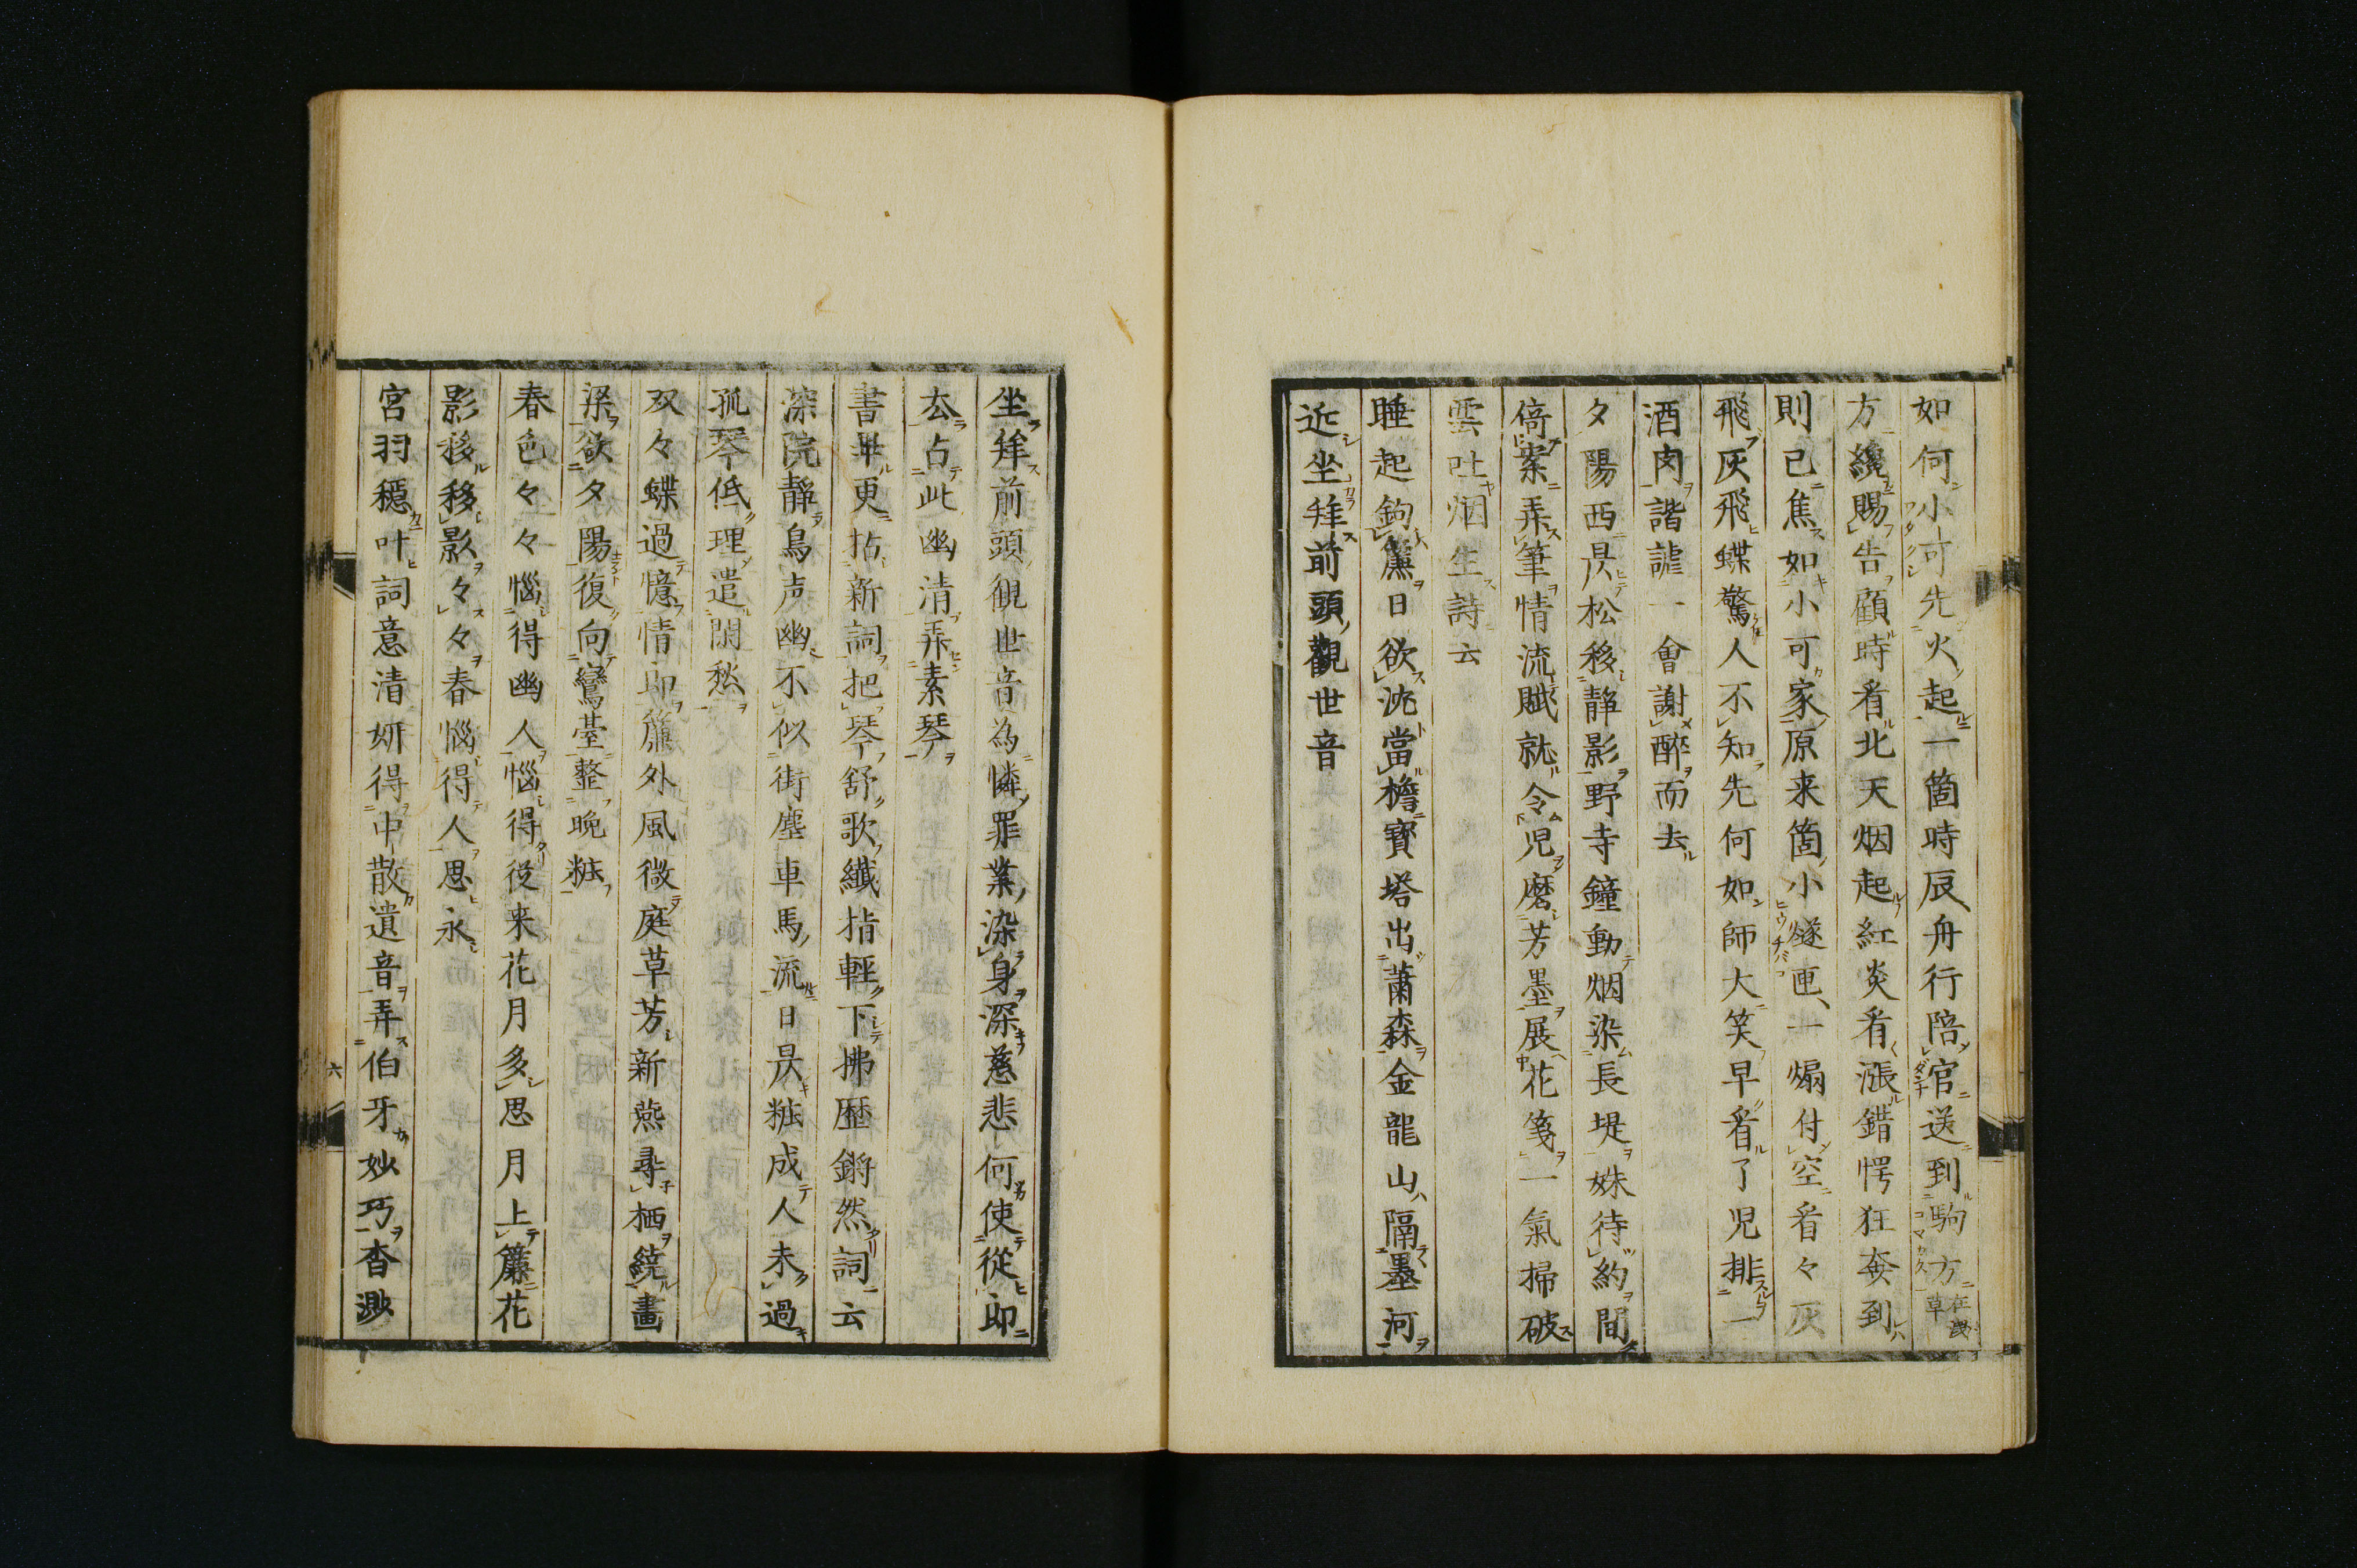 如何小可先火起一箇時辰舟行陪官送到駒方在淺草
方纔賜告顧時看北天烟起紅炎看漲錯愕狂奔到
則已焦如小可家原来箇小燧匣一煽付空看々灰
飛灰飛蝶驚人不知先何如師大笑早看了児排一
酒肉諧謔一會謝醉而去
夕陽西昃松移静影野寺鐘動烟染長堤姝待約間
倚案弄筆情流賦就令児磨芳墨展花箋一氣掃破
雲吐烟生詩云
睡起鉤簾日欲沈當檐寶塔出蕭森金龍山隔墨河
近坐拜前頭觀世音
坐拜前頭觀世音為憐罪業染身深慈悲何使從印
去占此幽清弄素琴
書畢更拈新詞把琴舒歌纖指輕下拂歴鏘然詞云
深院静鳥声幽不似街塵車馬流日昃粧成人未過
孤琴低理遣閑愁
双々蝶過憶情郎簾外風微庭草芳新燕尋栖繞畫
梁欲夕陽復向鸞臺整晩粧
春色々々惱得幽人惱得從来花月多思月上簾花
影移移影々々春惱得人思永
宮羽穩叶詞意清妍得中散遺音弄伯牙妙巧杳渺
六